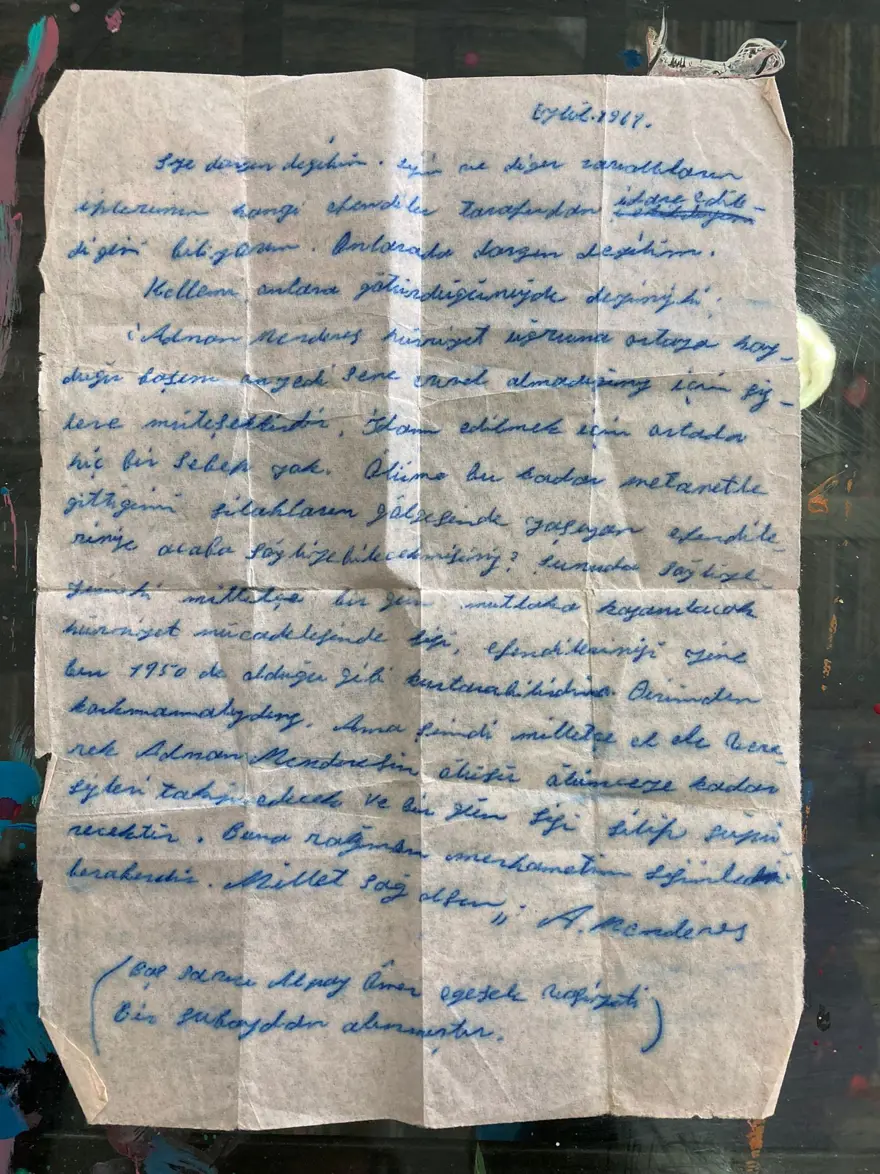 Eylül.1961.
Size dargın değilim. sizin ve diğer zavallıların
iplerinin hangi efendiler tarafından idare edile-
diğini biliyorum. Onlarada dargın değilim.
Kellemi onlara götürdüğünüzde deyinizki;
"Adnan Menderes hürriyet uğruna ortaya koy-
duğu başını onyedi sene evvel almadığınız için siz-
lere müteşekkirdir. İdam edilmek için ortada
hiç bir sebep yok. Ölüme bu kadar metanetle
gittiğimi silahların gölgesinde yaşayan efendile-
rinize acaba söyliyebilecekmisiniz? Şunuda söyliye-
yimki milletçe bir gün mutlaka kazanılacak
hürriyet mücadelesinde sizi, efendilerinizi yine
ben 1950 de olduğu gibi kurtarabilirdim. Dirimden
korkmamalıydınız. Ama şimdi milletçe el ele vere-
rek Adnan Menderesin ölüsü ölünceye kadar
sizleri takip edecek ve bir gün sizi silip süpü
recektir. Buna rağmen merhametim sizinle
beraberdir. Millet sağ olsun," A. Menderes
(Baş savcı Altay Ömer Egesel vasiyeti
Bir subaydan alınmıştır.)